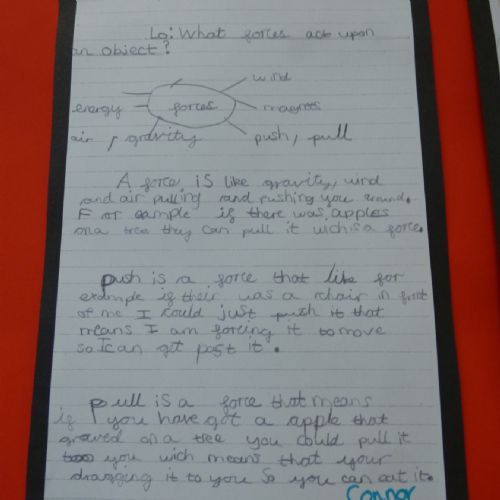 Lo: What forces act upon
an object?
wind
energy forces magnets
air, gravity push, pull
A force is like gravity, wind
and air pulling and pushing you around.
For eample if there was apples
on a tree they can pull it wich is a force.
push is a force that like for
example if their was a chair in frot
of me I could just push it that
means I am forcing it to move
so I can get past it.
pull is a force that means
if you have got a apple that
growed on a tree you could pull it
too you wich means that your
dragging it to you so you can eat it.
Connor